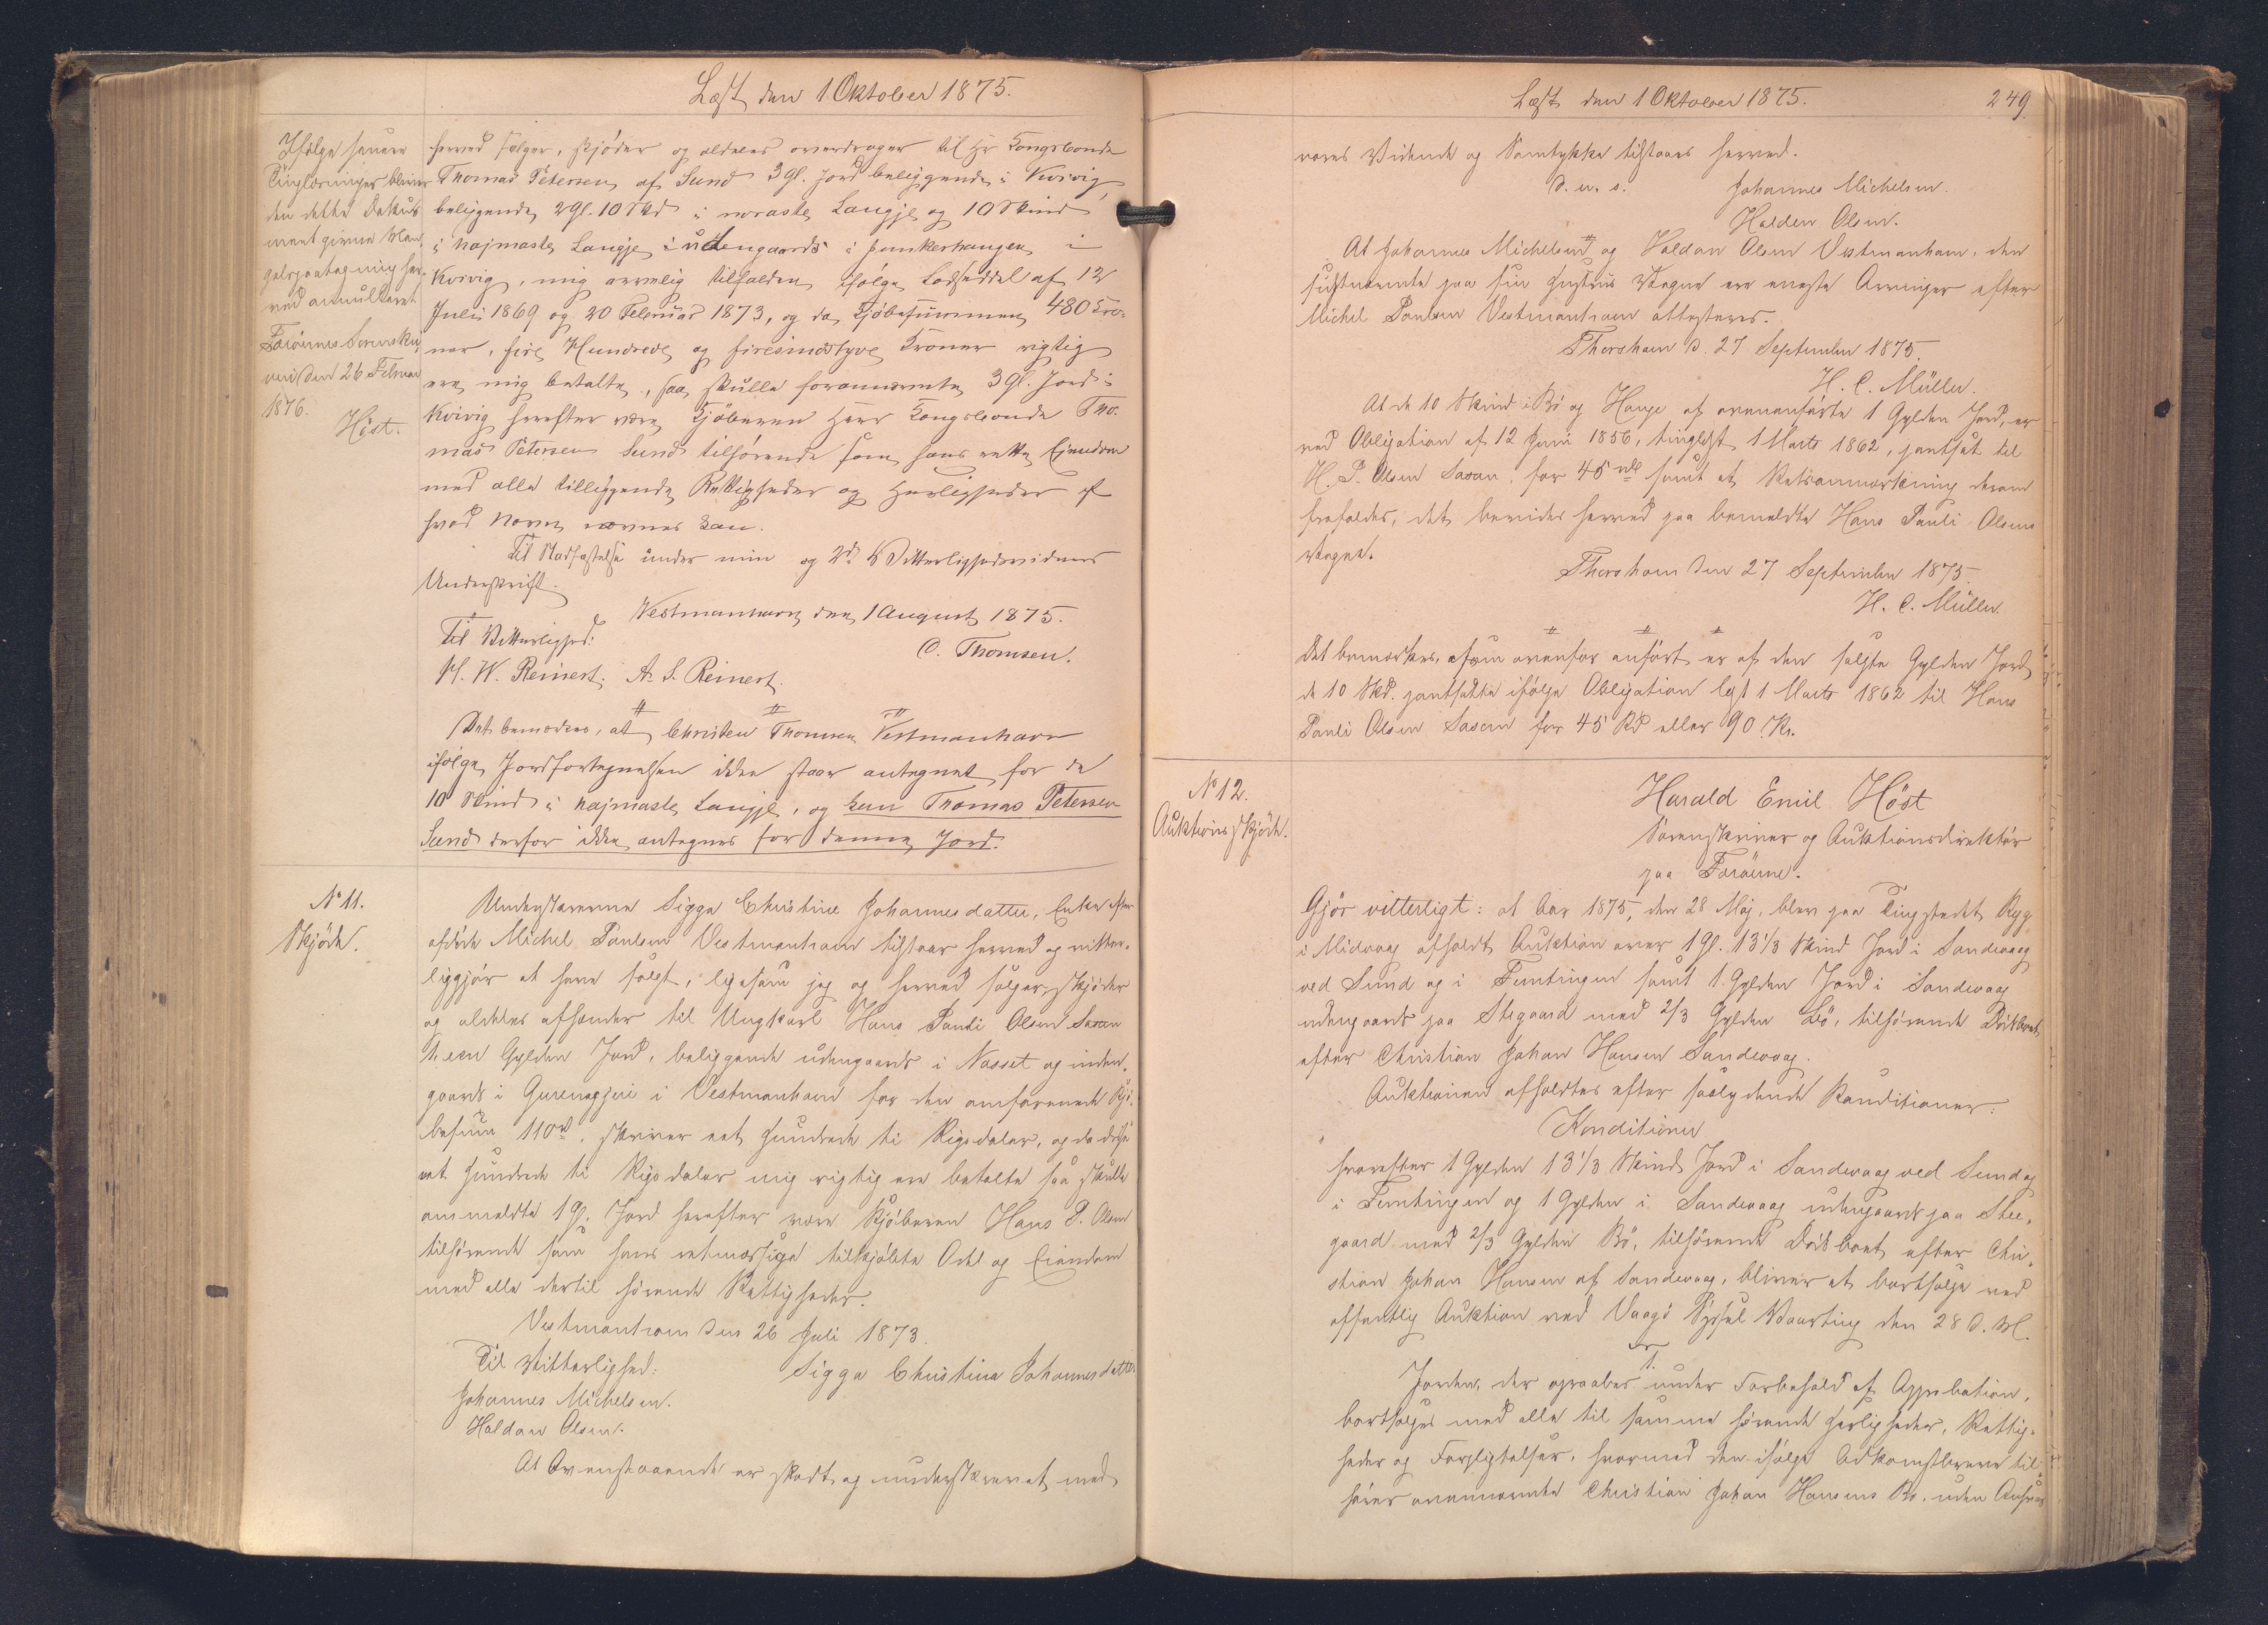 Læst den 1 Oktober 1875.
Ifølge senere
Tinglæsninger bliver
den dette Doku-
ment givne Man-
gelspaategning her-
ved annulleret
Færøernes Sorenskri-
veri den 26 Februar
1876.
Höst.
herved sælger, skjøder og aldeles overdrager til Hr Kongsbonde
Thomas Petersen af Sund 3 gl. Jord beliggende i Kvivig,
beliggende 2 gl. 10 Skd i noraste Laugje og 10 Skind
i najmaste Laugje i udengaards i þinkerhaugen i
Kvivig, mig arvelig tilfalden ifølge Lodseddel af 12
Juli 1869 og 20 Februar 1873, og da Kjöbesummen 480 Kro-
ner, fire Hundrede og firesindstyve Kroner rigtig
ere mig betalte, saa skulle forannævnte 3 gl. Jord i
Kvivig herefter være Kjöberen Herr Kongsbonde Tho-
mas Petersen Sund tilhørende som hans rette Eiendom
med alle tilliggende Rettigheder og Herligheder af
hvad Navn nævnes kan.
Til Stadfæstelse under min og 2de Vitterlighedsvidners
Underskrift.
Vestmanhavn den 1 August 1875.
Til Vitterlighed:
C. Thomsen.
M. W. Reinert. A. S. Reinert.
Det bemærkes, at Christen Thomsen Vestmanhavn
ifølge Jordfortegnelsen ikke staar antegnet for de
10 Skind i najmaste Laugje, og kan Thomas Petersen
Sund derfor ikke antegnes for denne Jord.
No 11.
Skjöde.
Understavnene Sigga Christine Johannesdatter, Enke efter
afdøde Michel Poulsen Vestmanhavn tilstaar herved og vitter-
liggjör at have solgt, ligesom jeg og herved sælger, skjöder
og aldeles afhænder til Ungkarl Hans Pauli Olsen Saxen
1 een Gylden Jord, beliggende udengaards i Nasset og inden-
gaards i Gurenagjeri i Vestmanhavn for den omforenede Kjö-
besum 110 rd. skriver eet Hundrede ti Rigsdaler, og da disse
eet Hundrede ti Rigsdaler mig rigtig ere betalte saa skulle
ommeldte 1 gl. Jord herefter være Kjöberen Hans P. Olsen
tilhörende som hans retmæssige tilkjöbte Odel og Eiendom
med alle dertil hörende Rettigheder.
Vestmanhavn den 26 Juli 1873.
Til Vitterlighed:
Sigga Christina Johannesdatter
Johannes Michelsen.
Haldan Olsen.
At Ovenstaaende er skedt og underskrevet med
Læst den 1 Oktober 1875.
249
vores Vidende og Samtykke tilstaaes herved.
D. u. s.
Johannes Michelsen.
Haldan Olsen.
At Johannes Michelsen og Haldan Olsen Vestmanhavn, den
sidstnævnte paa sin Hustrues Vegne ere eneste Arvinger efter
Michel Poulsen Vestmanhavn attesteres.
Thorshavn d. 27 September 1875.
H. C. Müller.
At de 10 Skind i Bö og Hauge af ovenanførte 1 Gylden Jord, er
ved Obligation af 12 Juni 1856, tinglæst 1 Marts 1862, pantsat til
H. P. Olsen Saxen, for 45 rdl samt at Retsanmærkning derom
frafaldes, det bevidnes herved paa bemeldte Hans Pauli Olsens
Vegne.
Thorshavn den 27 September 1875.
H. C. Müller.
Det bemærkes, at som ovenfor anført er af den solgte Gylden Jord
de 10 Skd. pantsatte ifølge Obligation lgt 1 Marts 1862 til Hans
Pauli Olsen Saxen for 45 Rd eller 90 Kr.
No 12.
Auktionsskjöde.
Harald Emil Höst
Sorenskriver og Auktionsdirektör
paa Færöerne.
Gjör vitterligt: at Aar 1875, den 28 Maj, blev paa Tingstedet Ryg
i Midvaag afholdt Auktion over 1 gl. 13 1/3 Skind Jord i Sandevaag
ved Sund og i Femtingen samt 1 Gylden Jord i Sandevaag
udengaards paa Stegaard med 2/3 Gylden Bö, tilhörende Dödsboet
efter Christian Johan Hansen Sandevaag.
Auktionen afholdtes efter saalydende Konditioner:
Konditioner
hvorefter 1 Gylden 13 1/3 Skind Jord i Sandevaag ved Sund og
i Femtingen og 1 Gylden i Sandevaag udengaards paa Ste-
gaard med 2/3 Gylden Bö, tilhörende Dödsboet efter Chri-
stian Johan Hansen af Sandevaag, bliver at bortsælge ved
offentlig Auktion ved Vaagö Syssel Vaarting den 28 d. M.
1.
Jorden, der opraabes under Forbehold af Approbation,
bortsælges med alle til samme hörende Herligheder, Rettig-
heder og Forpligtelser, hvormed den ifølge Adkomstbreve til-
hörer ovennævnte Christian Johan Hansens Bo, uden Ansvar